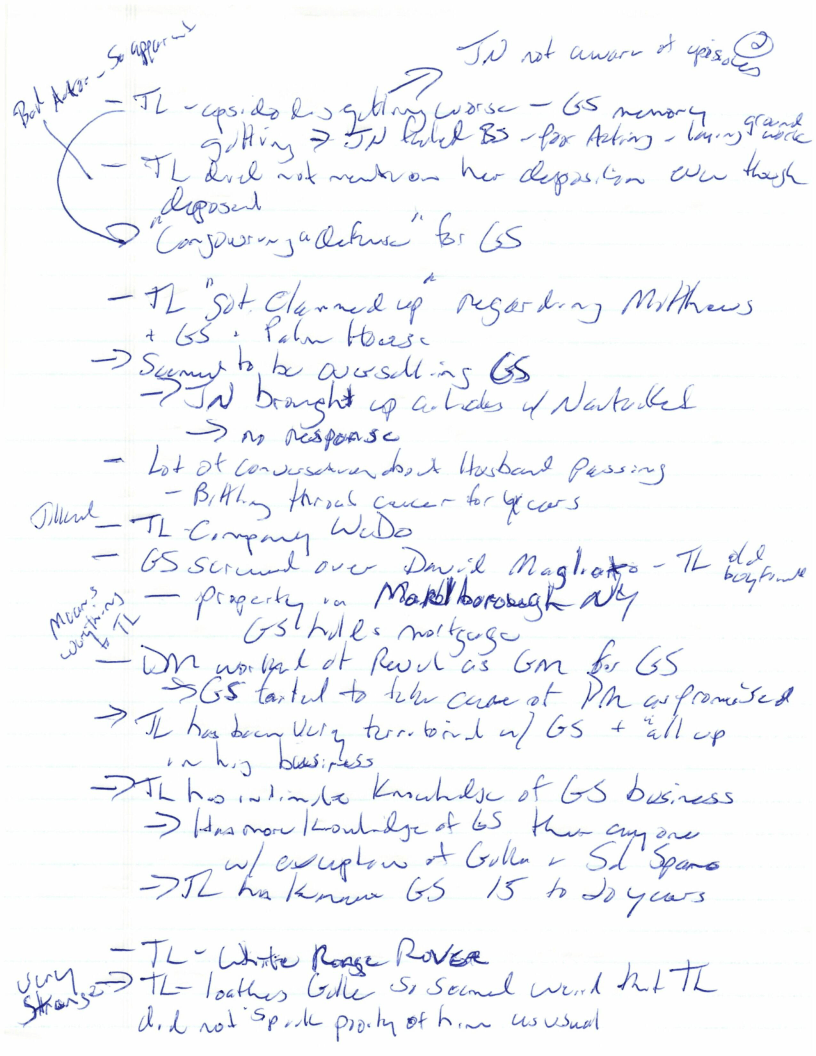 ②
JN not aware of episodes
Bad Actor - So apparent
- TL - episodes getting worse - GS memory
getting → JN BS - for Acting - laying ground work
- TL did not mention her deposition even though
deposed
→ "Conjouring a Defense" for GS
- TL "got Clammed up" regarding Matthews
+ GS + Palm House
→ Seemed to be overselling GS
→ JN brought up articles w/ Nantucket
→ no response
- Lot of conversation about Husband Passing
- Battling throat cancer for years
Jilland
- TL - Company WaDo
- GS screwed over David Magliato - TL old boyfriend
- property in Marlborough NY
GS holds mortgage
Means everything to TL
- DM worked at Revel as GM for GS
→ GS failed to take care of DM as promised
→ TL has been very territorial w/ GS + "all up
in his business
→ TL has intimate Knowledge of GS business
→ Has more Knowledge of GS than anyone
w/ exception of Galle + Sal Spano
→ TL has known GS 15 to 20 years
- TL - White Range Rover
very strange
→ TL - loathes Galle so seemed weird that TL
did not speak poorly of him as usual